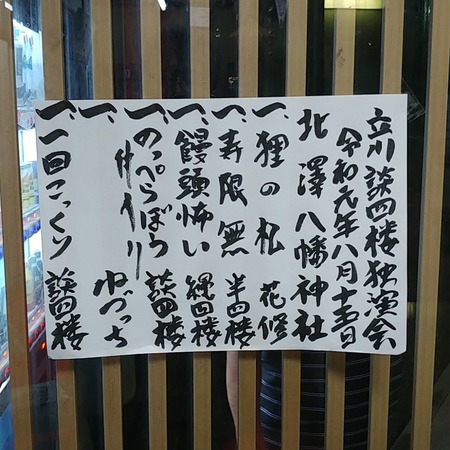 立川談四楼独演会
令和元年八月十五日
北澤八幡神社
一、狸の札 花修
一、寿限無 半四楼
一、饅頭怖い 縄四楼
一、のっぺらぼう 談四楼
仲入り
一、 ねづっち
一、一回こっくり 談四楼